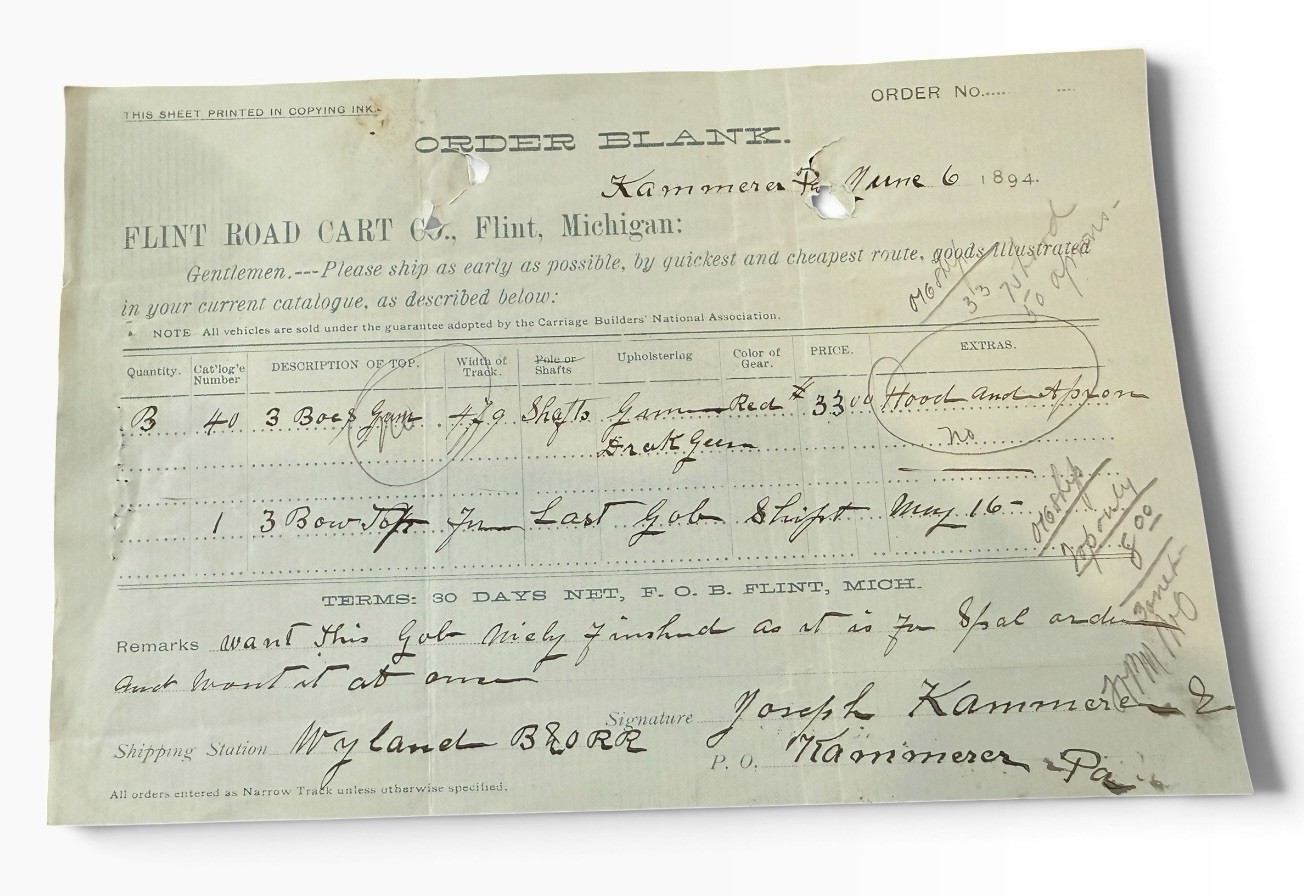 THIS SHEET PRINTED IN COPYING INK.
ORDER No.....
ORDER BLANK.
Kammerer Pa June 6 1894.
FLINT ROAD CART CO., Flint, Michigan:
Gentlemen.---Please ship as early as possible, by quickest and cheapest route, goods Illustrated
in your current catalogue, as described below:
NOTE All vehicles are sold under the guarantee adopted by the Carriage Builders' National Association.
33
Quantity. Cat'log'e Number DESCRIPTION OF TOP. Width of Track. Pole or Shafts Upholstering Color of Gear. PRICE. EXTRAS.
B 40 3 Shafts Red $33 00 Hood and Apron
no
1 3 Bow Top Last Gob Shipt May 16-
Top only
8 00
TERMS: 30 DAYS NET, F. O. B. FLINT, MICH.
Remarks want this Gob Nicly Finshed as it is for Spal order
and want it at once
Signature Joseph Kammerer
Shipping Station Wyland B&ORR
P. O. Kammerer Pa
All orders entered as Narrow Track unless otherwise specified.